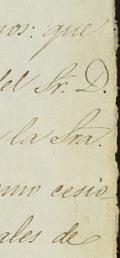 nos: que
del Sr. D.
la Sra.
como cesio
ales de